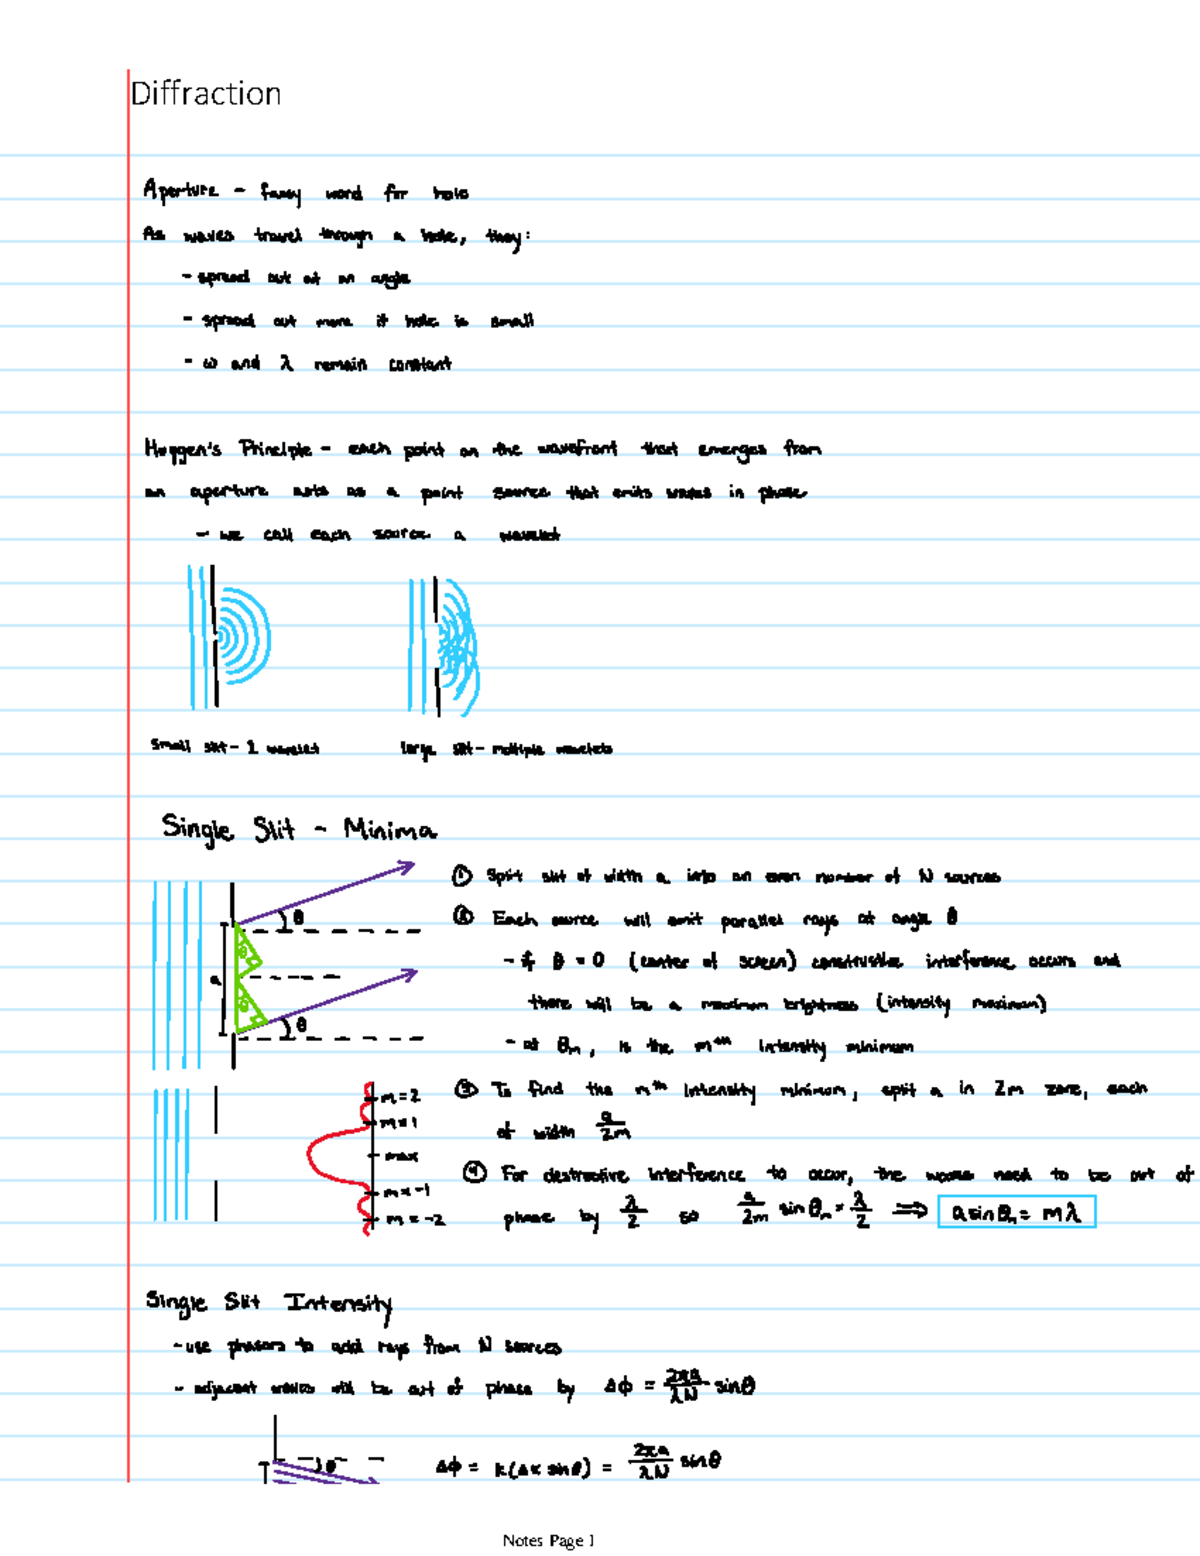 Diffraction
Aperture - fancy word for hole
As waves travel through a hole, they:
- spread out at an angle
- spread out more if hole is small
- ω and λ remain constant
Huygen's Principle - each point on the wavefront that emerges from
an aperture acts as a point source that emits waves in phase
- we call each source a wavelet
small slit - 1 wavelet
large slit - multiple wavelets
Single Slit - Minima
① Split slit of width a into an even number of N sources
② Each source will emit parallel rays at angle θ
- if θ = 0 (center of screen) constructive interference occurs and
there will be a maximum brightness (intensity maximum)
- at θm, is the mth intensity minimum
θ
θ
a
θ
θ
③ To find the mth intensity minimum, split a in 2m zones, each
of width a/2m
m = 2
m = 1
max
m = -1
m = -2
④ For destructive interference to occur, the waves need to be out of
phase by λ/2 so a/2m sinθm = λ/2 ⟹ a sinθm = mλ
Single Slit Intensity
- use phasors to add rays from N sources
- adjacent waves will be out of phase by Δϕ = 2πa/λN sinθ
θ
Δϕ = k(Δx sinθ) = 2πa/λN sinθ
Notes Page 1